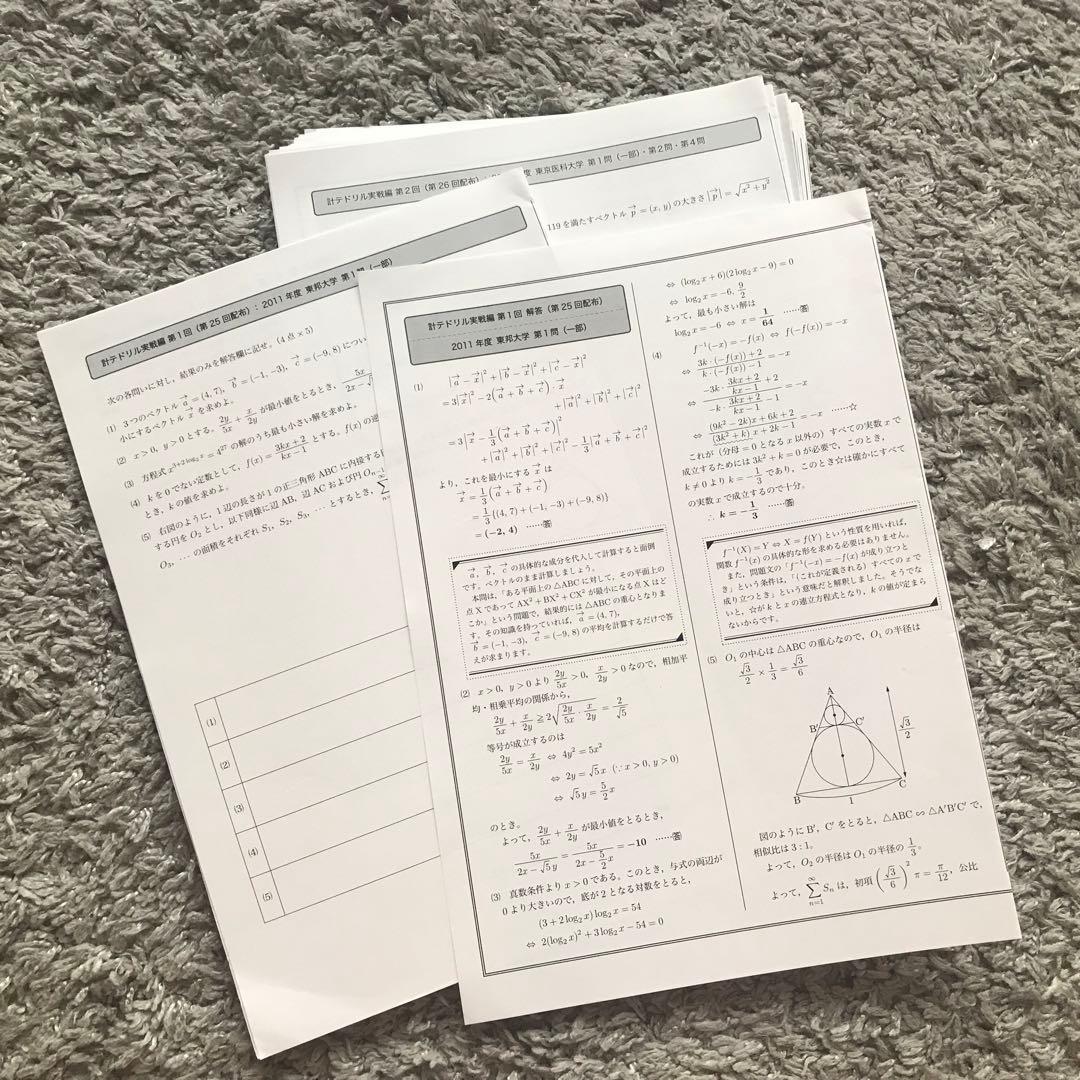 計テドリル実戦編 第2回（第26回配布）
度 東京医科大学 第1問（一部）・第2問・第4問
119 を満たすベクトル \vec{p} = (x, y) の大きさ |\vec{p}| = \sqrt{x^2 + y^2}
計テドリル実戦編 第1回（第25回配布）：2011年度 東邦大学 第1問（一部）
次の各問いに対し，結果のみを解答欄に記せ。（4点×5）
(1) 3つのベクトル \vec{a} = (4, 7), \vec{b} = (-1, -3), \vec{c} = (-9, 8) につい
小にするベクトル \vec{x} を求めよ。
(2) x > 0, y > 0 とする。\frac{2y}{5x} + \frac{x}{2y} が最小値をとるとき，\frac{5x}{2x - \sqrt{5}
(3) 方程式 x^{3+2\log_2 x} = 4^{27} の解のうち最も小さい解を求めよ。
(4) k を 0 でない定数として，f(x) = \frac{3kx+2}{kx-1} とする。f(x) の逆
とき，k の値を求めよ。
(5) 右図のように，1辺の長さが1の正三角形 ABC に内接する
する円を O_2 とし，以下同様に辺 AB，辺 AC および円 O_{n-1}
O_3，… の面積をそれぞれ S_1, S_2, S_3, … とするとき，\sum
(1)
(2)
(3)
(4)
(5)
計テドリル実戦編 第1回 解答（第25回配布）
2011年度 東邦大学 第1問（一部）
(1) |\vec{a} - \vec{x}|^2 + |\vec{b} - \vec{x}|^2 + |\vec{c} - \vec{x}|^2
= 3|\vec{x}|^2 - 2(\vec{a} + \vec{b} + \vec{c}) · \vec{x}
+ |\vec{a}|^2 + |\vec{b}|^2 + |\vec{c}|^2
= 3|\vec{x} - \frac{1}{3}(\vec{a} + \vec{b} + \vec{c})|^2
+ |\vec{a}|^2 + |\vec{b}|^2 + |\vec{c}|^2 - \frac{1}{3}|\vec{a} + \vec{b} + \vec{c}|^2
より，これを最小にする \vec{x} は
\vec{x} = \frac{1}{3}(\vec{a} + \vec{b} + \vec{c})
= \frac{1}{3}{(4, 7) + (-1, -3) + (-9, 8)}
= (-2, 4) ……答
\vec{a}, \vec{b}, \vec{c} の具体的な成分を代入して計算すると面倒
です。ベクトルのまま計算しましょう。
本問は，「ある平面上の △ABC に対して，その平面上の
点 X であって AX^2 + BX^2 + CX^2 が最小になる点 X はど
こか」という問題で，結果的には △ABC の重心となりま
す。その知識を持っていれば，\vec{a} = (4, 7),
\vec{b} = (-1, -3), \vec{c} = (-9, 8) の平均を計算するだけで答
えが求まります。
(2) x > 0, y > 0 より \frac{2y}{5x} > 0, \frac{x}{2y} > 0 なので，相加平
均・相乗平均の関係から，
\frac{2y}{5x} + \frac{x}{2y} ≧ 2\sqrt{\frac{2y}{5x} · \frac{x}{2y}} = \frac{2}{\sqrt{5}}
等号が成立するのは
\frac{2y}{5x} = \frac{x}{2y} ⇔ 4y^2 = 5x^2
⇔ 2y = \sqrt{5}x (∵ x > 0, y > 0)
⇔ \sqrt{5}y = \frac{5}{2}x
のとき。
よって，\frac{2y}{5x} + \frac{x}{2y} が最小値をとるとき，
\frac{5x}{2x - \sqrt{5}y} = \frac{5x}{2x - \frac{5}{2}x} = -10 ……答
(3) 真数条件より x > 0 である。このとき，与式の両辺が
0 より大きいので，底が 2 となる対数をとると，
(3 + 2\log_2 x)\log_2 x = 54
⇔ 2(\log_2 x)^2 + 3\log_2 x - 54 = 0
⇔ (\log_2 x + 6)(2\log_2 x - 9) = 0
⇔ \log_2 x = -6, \frac{9}{2}
よって，最も小さい解は
\log_2 x = -6 ⇔ x = \frac{1}{64} ……答
(4) f^{-1}(-x) = -f(x) ⇔ f(-f(x)) = -x
⇔ \frac{3k · (-f(x)) + 2}{k · (-f(x)) - 1} = -x
⇔ \frac{-3k · \frac{3kx+2}{kx-1} + 2}{-k · \frac{3kx+2}{kx-1} - 1} = -x
⇔ \frac{(9k^2 - 2k)x + 6k + 2}{(3k^2 + k)x + 2k - 1} = -x ……☆
これが（分母 = 0 となる x 以外の）すべての実数 x で
成立するためには 3k^2 + k = 0 が必要で，このとき，
k ≠ 0 より k = -\frac{1}{3} であり，このとき☆は確かにすべて
の実数 x で成立するので十分。
∴ k = -\frac{1}{3} ……答
f^{-1}(X) = Y ⇔ X = f(Y) という性質を用いれば，
関数 f^{-1}(x) の具体的な形を求める必要はありません。
また，問題文の「f^{-1}(-x) = -f(x) が成り立つと
き」という条件は，「（これが定義される）すべての x で
成り立つとき」という意味だと解釈しました。そうでな
いと，☆が k と x の連立方程式となり，k の値が定まら
ないからです。
(5) O_1 の中心は △ABC の重心なので，O_1 の半径は
\frac{\sqrt{3}}{2} × \frac{1}{3} = \frac{\sqrt{3}}{6}
A
B′
C′
\frac{\sqrt{3}}{2}
B
1
C
図のように B′，C′ をとると，△ABC ∽ △A′B′C′ で，
相似比は 3 : 1。
よって，O_2 の半径は O_1 の半径の \frac{1}{3}。
よって，\sum_{n=1}^{∞} S_n は，初項 (\frac{\sqrt{3}}{6})^2 π = \frac{π}{12}，公比